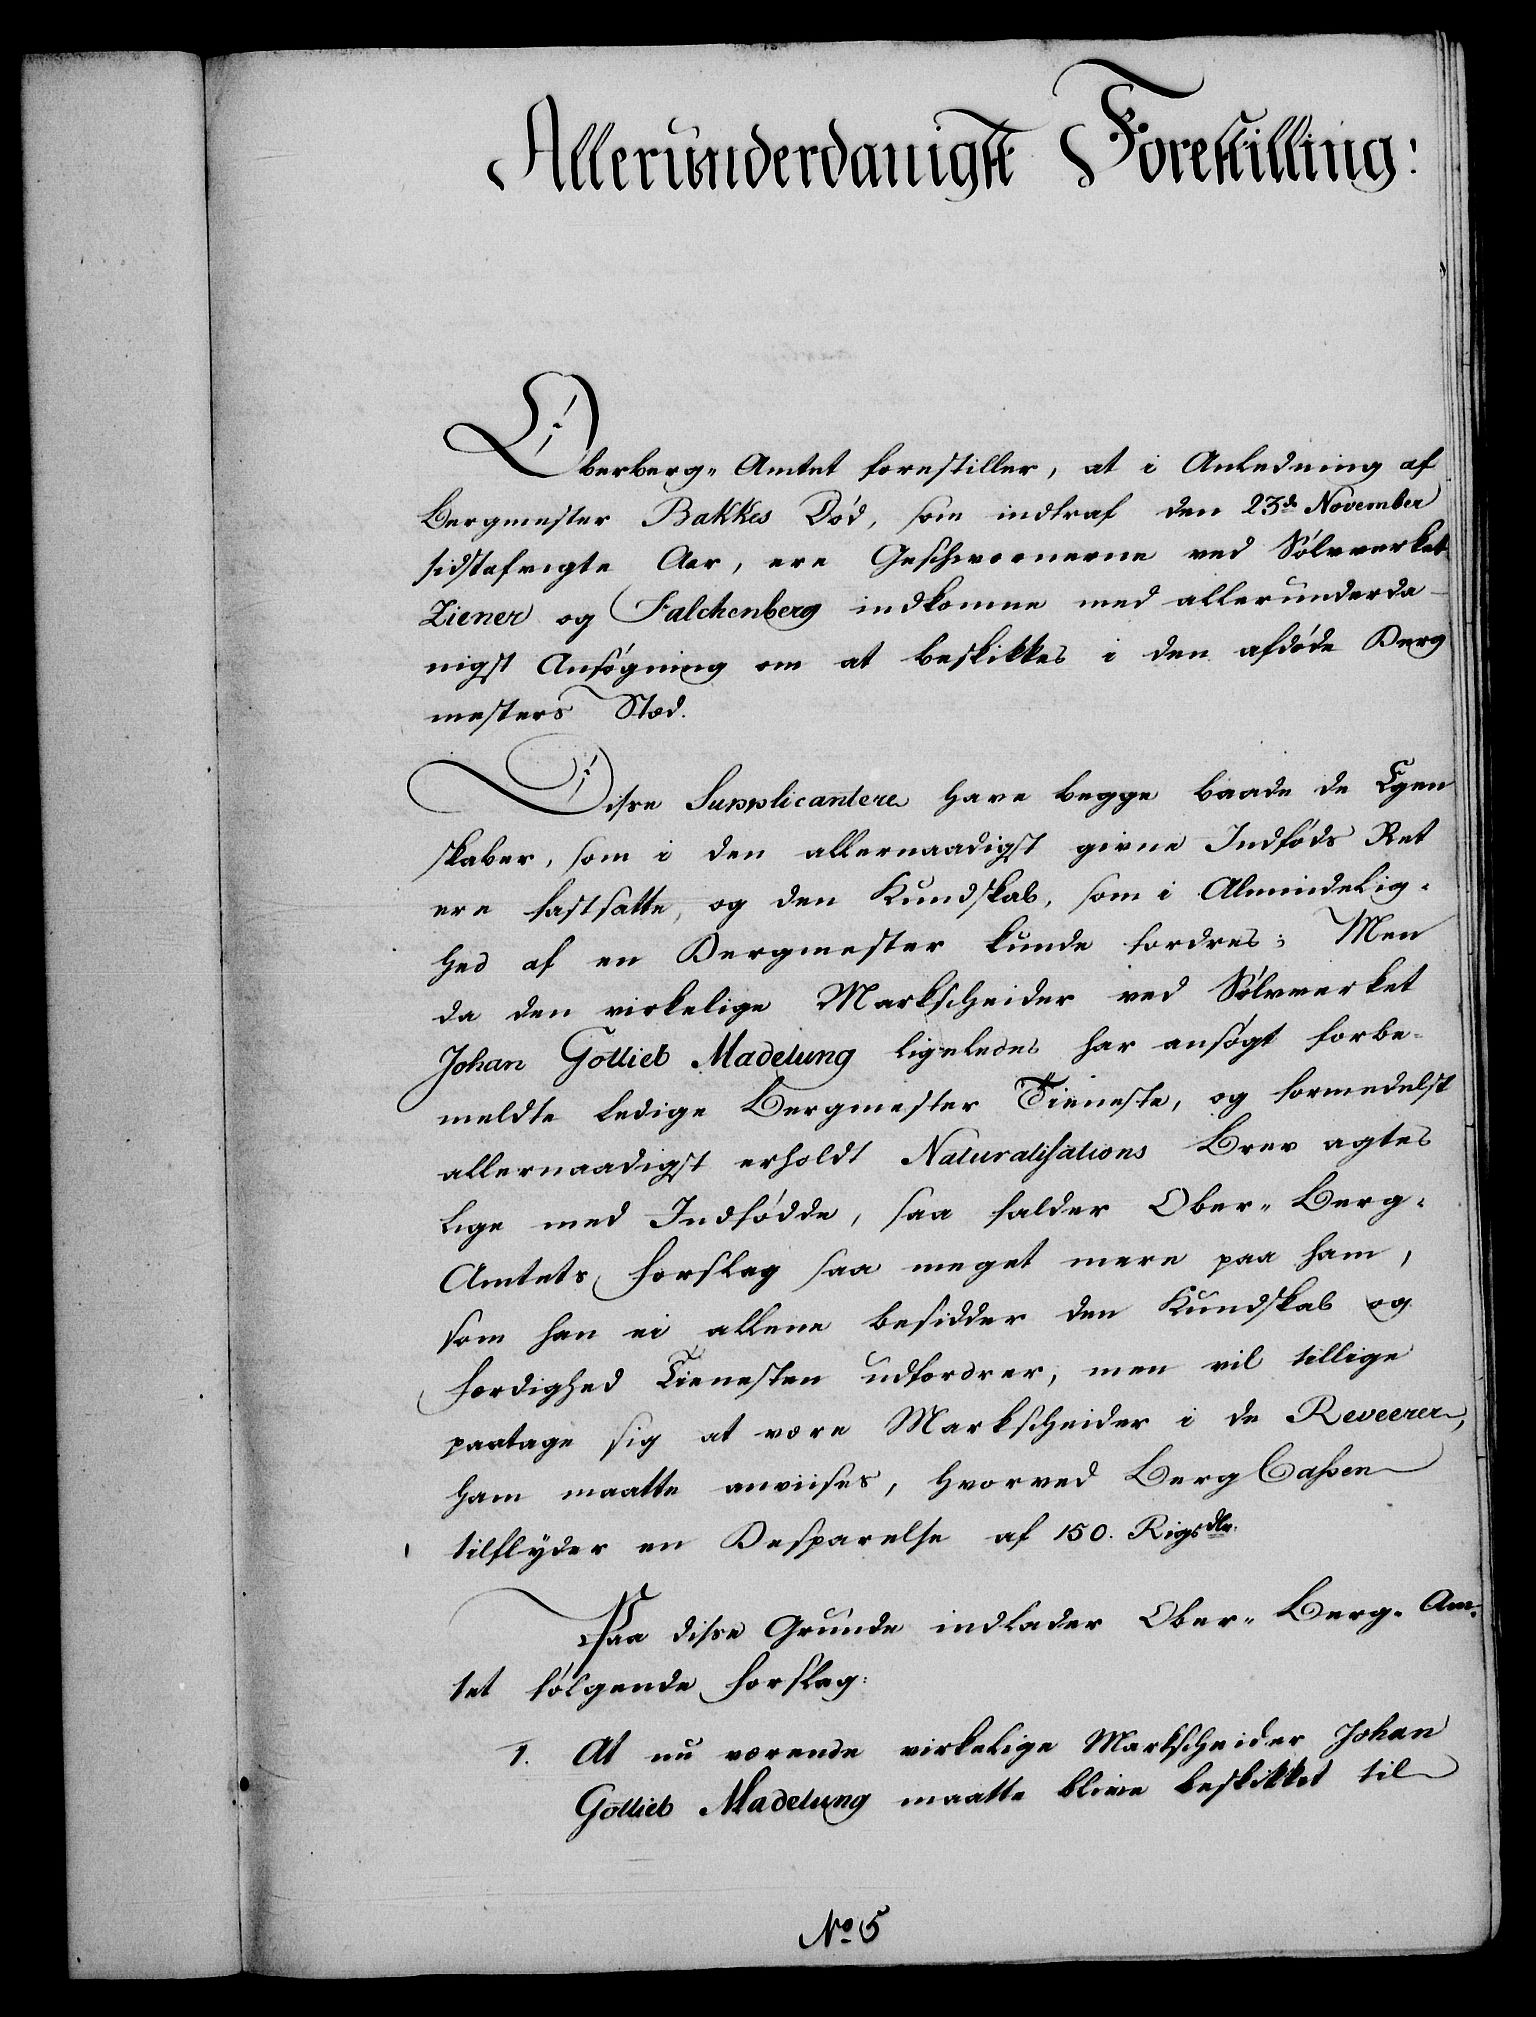 Allerunderdanigst Forestilling:
Oberberg-Amtet forestiller, at i Anledning af
Bergmester Bakkes Død, som indtraf den 23de November
sidstafvigte Aar, ere Geschwornerne ved Sølvverket
Ziener og Falchenberg indkomne med allerunderda-
nigst Ansøgning om at beskikkes i den afdøde Berg
mesters Stæd.
Disse Supplicantere have begge baade de Egen
skaber, som i den allernaadigst givne Indføds Ret
ere fastsatte, og den Kundskab, som i Almindelig-
hed af en Bergmester kunde fordres; Men
da den virkelige Markscheider ved Sølvverket
Johan Gottlieb Madelung ligeledes har ansøgt forbe-
meldte ledige Bergmester Tieneste, og formedelst
allernaadigst erholdt Naturalisations Brev agtes
lige med Indfødde, saa falder Ober-Berg-
Amtets Forslag saa meget mere paa ham,
som han ei allene besidder den Kundskab og
Færdighed Tienesten udfordrer, men vil tillige
paatage sig at være Markscheider i de Reveerer,
ham maatte anviises, hvorved Berg Cassen
tilflyder en Besparelse af 150. Rigsdlr.
Paa disse Grunde indlader Ober-Berg-Am-
tet følgende Forslag:
1. At nu værende virkelige Markscheider Johan
Gottlieb Madelung maatte blive beskikket til
No 5